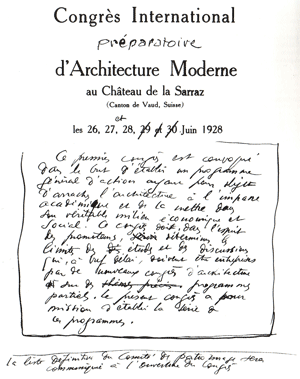 Congrès International
préparatoire
d'Architecture Moderne
au Château de la Sarraz
(Canton de Vaud, Suisse)
et
les 26, 27, 28, 29 et 30 Juin 1928
Ce premier congrès est convoqué
dans le but d'établir un programme
général d'action ayant pour objet
d'arracher l'architecture à l'impasse
académique et de la mettre dans
son véritable milieu économique et
social. Ce congrès doit, dans l'esprit
des promoteurs, déterminer les
limites des études et des discussions
qui, à bref délai, doivent être entreprises
par de nouveaux congrès d'architecture
sur des programmes
partiels. Le présent congrès a pour
mission d'établir la série de
ces programmes.
La liste définitive du Comité de patronage sera
communiquée à l'ouverture du Congrès